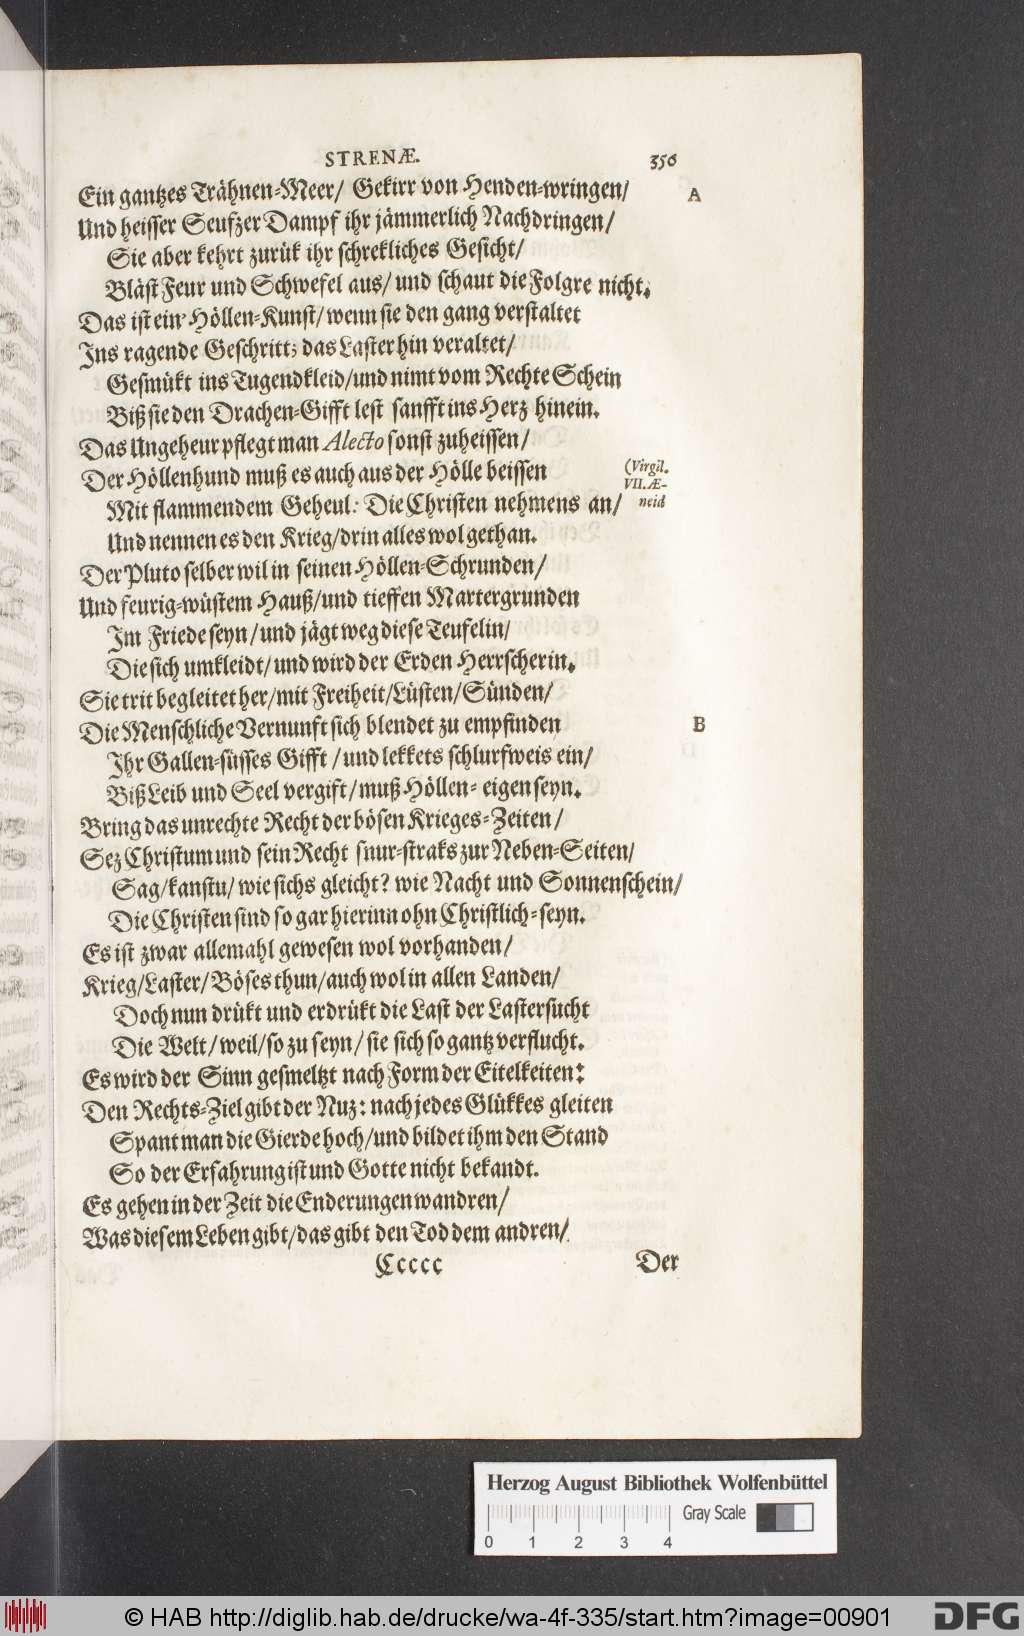 STRENÆ. 350
Ein gantzes Trähnen-Meer/ Gekirr von Henden-wringen/ A
Und heisser Seufzer Dampf ihr jämmerlich Nachdringen/
Sie aber kehrt zurük ihr schrekliches Gesicht/
Bläst Feur und Schwefel aus/ und schaut die Folgre nicht.
Das ist ein' Höllen-Kunst/ wenn sie den gang verstaltet
Ins ragende Geschritt; das Laster hin veraltet/
Gesmükt ins Tugendkleid/ und nimt vom Rechte Schein
Biß sie den Drachen-Gifft lest sanfft ins Herz hinein.
Das Ungeheur pflegt man Alecto sonst zuheissen/
Der Höllenhund muß es auch aus der Hölle beissen (Virgil.
VII. Æ-
Mit flammendem Geheul: Die Christen nehmens an/ neid
Und nennen es den Krieg/ drin alles wol gethan.
Der Pluto selber wil in seinen Höllen-Schrunden/
Und feurig-wüstem Hauß/ und tieffen Martergrunden
Im Friede seyn/ und jägt weg diese Teufelin/
Die sich umkleidt/ und wird der Erden Herrscherin.
Sie trit begleitet her/ mit Freiheit/ Lüsten/ Sünden/
Die Menschliche Vernunft sich blendet zu empfinden B
Ihr Gallen-süsses Gifft/ und lekkets schlurfweis ein/
Biß Leib und Seel vergift/ muß Höllen-eigen seyn.
Bring das unrechte Recht der bösen Krieges-Zeiten/
Sez Christum und sein Recht snur-straks zur Neben-Seiten/
Sag/ kanstu/ wie sichs gleicht? wie Nacht und Sonnenschein/
Die Christen sind so gar hierinn ohn Christlich-seyn.
Es ist zwar allemahl gewesen wol vorhanden/
Krieg/ Laster/ Böses thun/ auch wol in allen Landen/
Doch nun drükt und erdrükt die Last der Lastersucht
Die Welt/ weil/ so zu seyn/ sie sich so gantz verflucht.
Es wird der Sinn gesmeltzt nach Form der Eitelkeiten:
Den Rechts-Ziel gibt der Nuz: nach jedes Glükkes gleiten
Spant man die Gierde hoch/ und bildet ihm den Stand
So der Erfahrung ist und Gotte nicht bekandt.
Es gehen in der Zeit die Enderungen wandren/
Was diesem Leben gibt/ das gibt den Tod dem andren/
Ccccc Der
Herzog August Bibliothek Wolfenbüttel
Gray Scale
0 1 2 3 4
© HAB http://diglib.hab.de/drucke/wa-4f-335/start.htm?image=00901 DFG